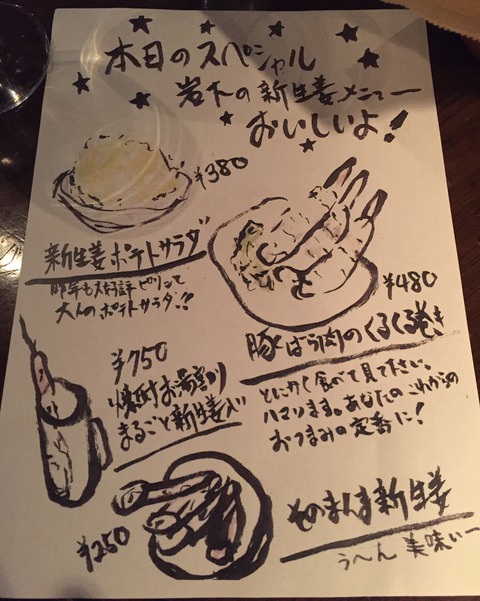 本日のスペシャル
岩下の新生姜メニュー
おいしいよ!
¥380
新生姜ポテトサラダ
昨年も大好評ピリッと
大人のポテトサラダ!!
¥480
豚ばら肉のくるくる巻き
とにかく食べて見て下さい。
ハマリます。あなたのこれからの
おつまみの定番に!
¥750
焼酎お湯割り
まるごと新生姜入り
¥250
そのまんま新生姜
う〜ん 美味いー